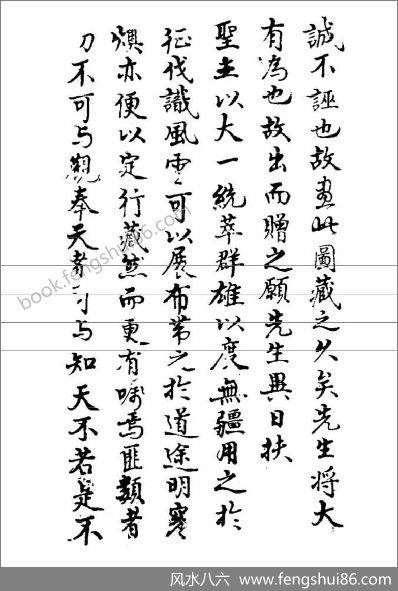 誠不誣也故畫此圖藏之久矣先生将大
有為也故出而贈之願先生異日扶
聖主以大一統萃群雄以度無疆用之於
征伐識風雲可以展布帶之於道途明寒
燠亦便以定行藏然而更有嘱焉匪類者
刀不可与觀奉天者可与知天不若是不
book.fengshui86.com
风水八六 www.fengshui86.com